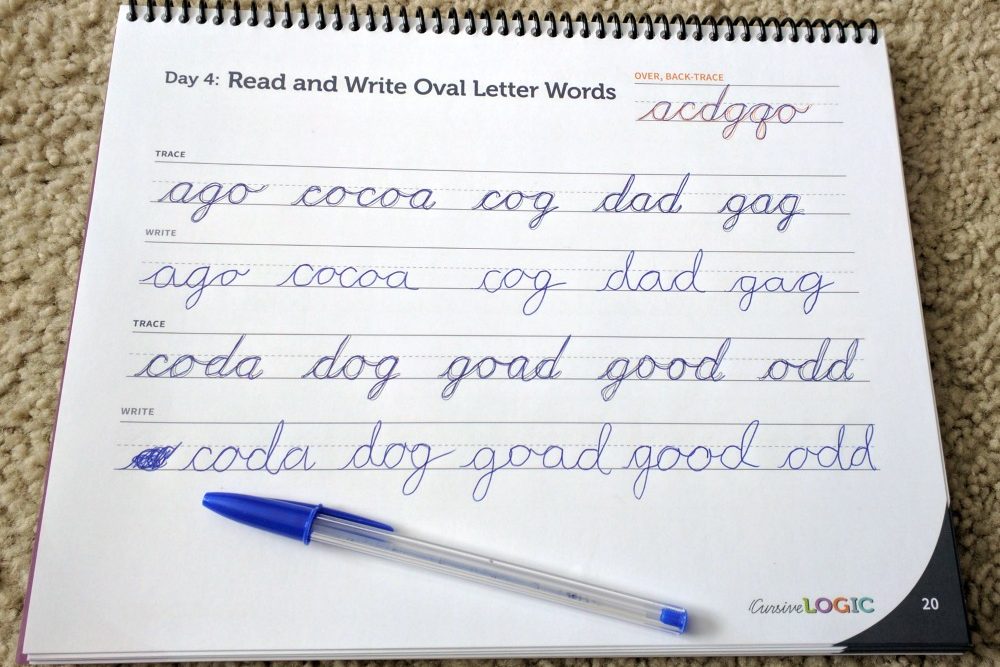 Day 4: Read and Write Oval Letter Words
OVER, BACK-TRACE
acdgqo
TRACE
ago cocoa cog dad gag
WRITE
ago cocoa cog dad gag
TRACE
coda dog goad good odd
WRITE
coda dog goad good odd
CursiveLOGIC
20